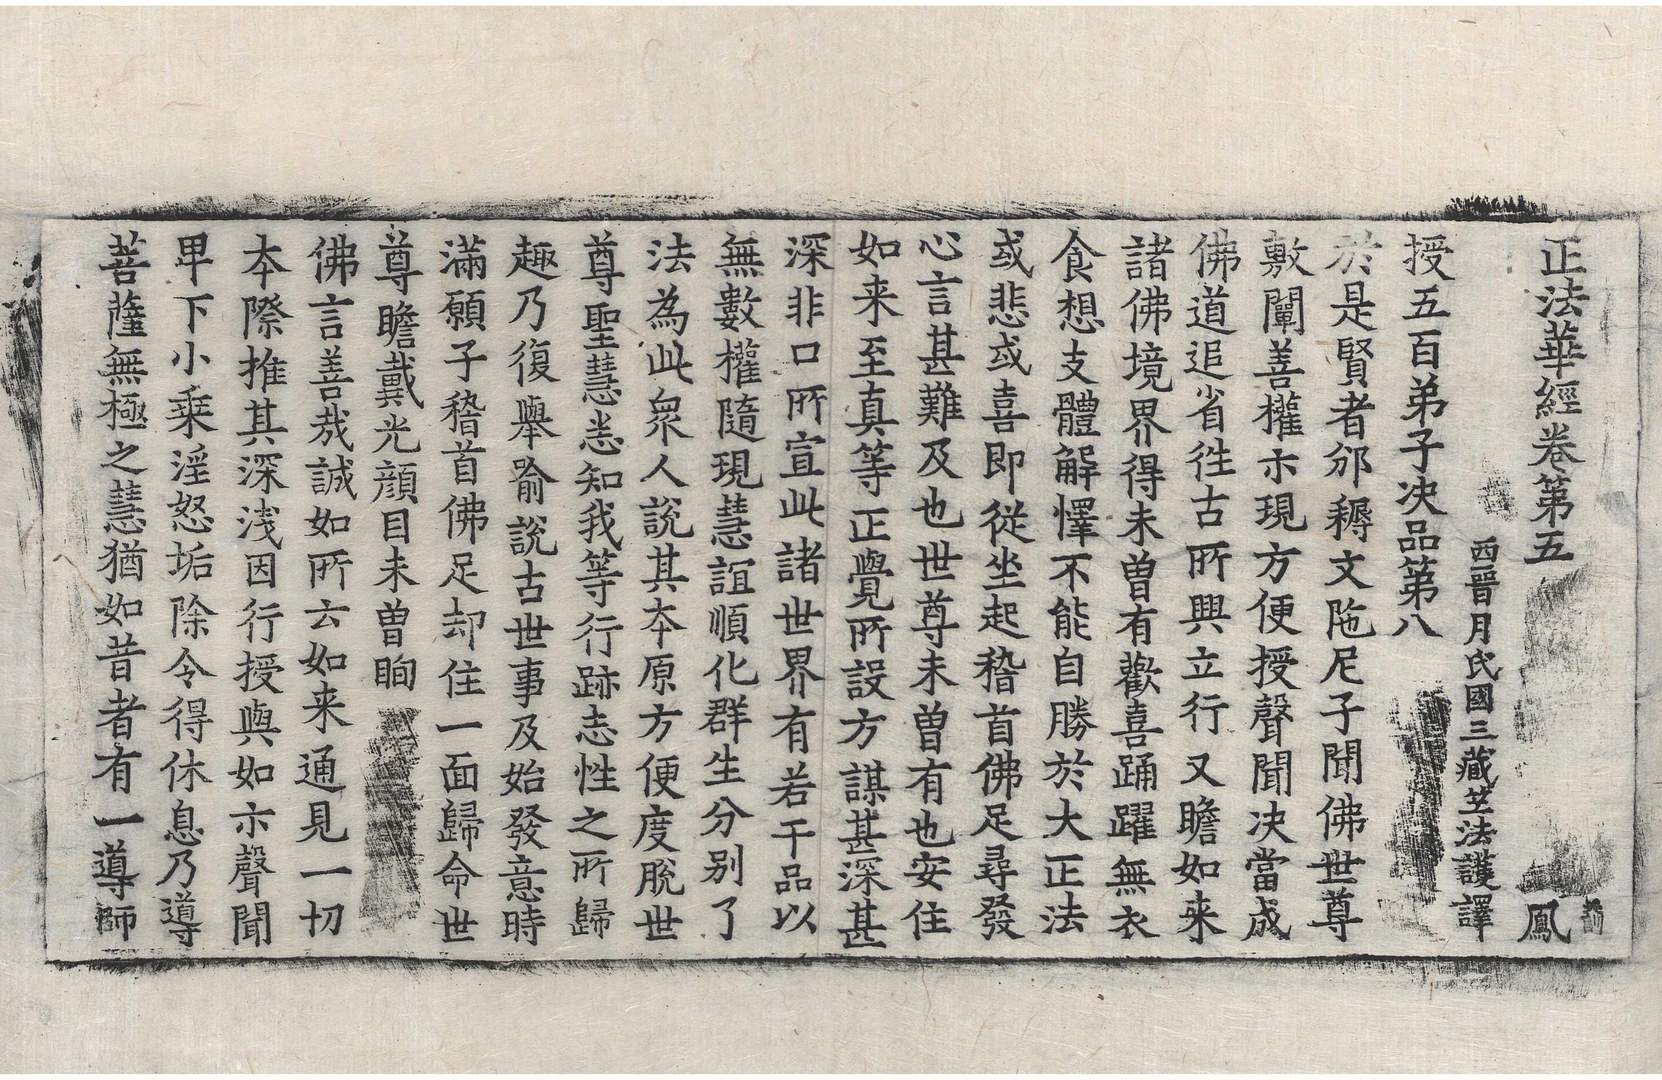 正法華經卷第五 鳳
西晉月氏國三藏竺法護譯
授五百弟子决品第八
於是賢者邠耨文陁尼子聞佛世尊
敷闡善權示現方便授聲聞决當成
佛道追省徃古所興立行又瞻如来
諸佛境界得未曽有歡喜踊躍無衣
食想支體解懌不能自勝於大正法
或悲或喜即從坐起稽首佛足尋發
心言甚難及也世尊未曽有也安住
如来至真等正覺所設方謀甚深甚
深非口所宣此諸世界有若干品以
無數權隨現慧誼順化群生分别了
法為此衆人說其夲原方便度脫世
尊聖慧悉知我等行跡志性之所歸
趣乃復舉喻說古世事及始發意時
滿願子稽首佛足却住一面歸命世
尊瞻戴光顔目未曽眴
佛言善哉誠如所云如来通見一切
夲際推其深淺因行授與如示聲聞
卑下小乗淫怒垢除令得休息乃導
菩薩無極之慧猶如昔者有一導師